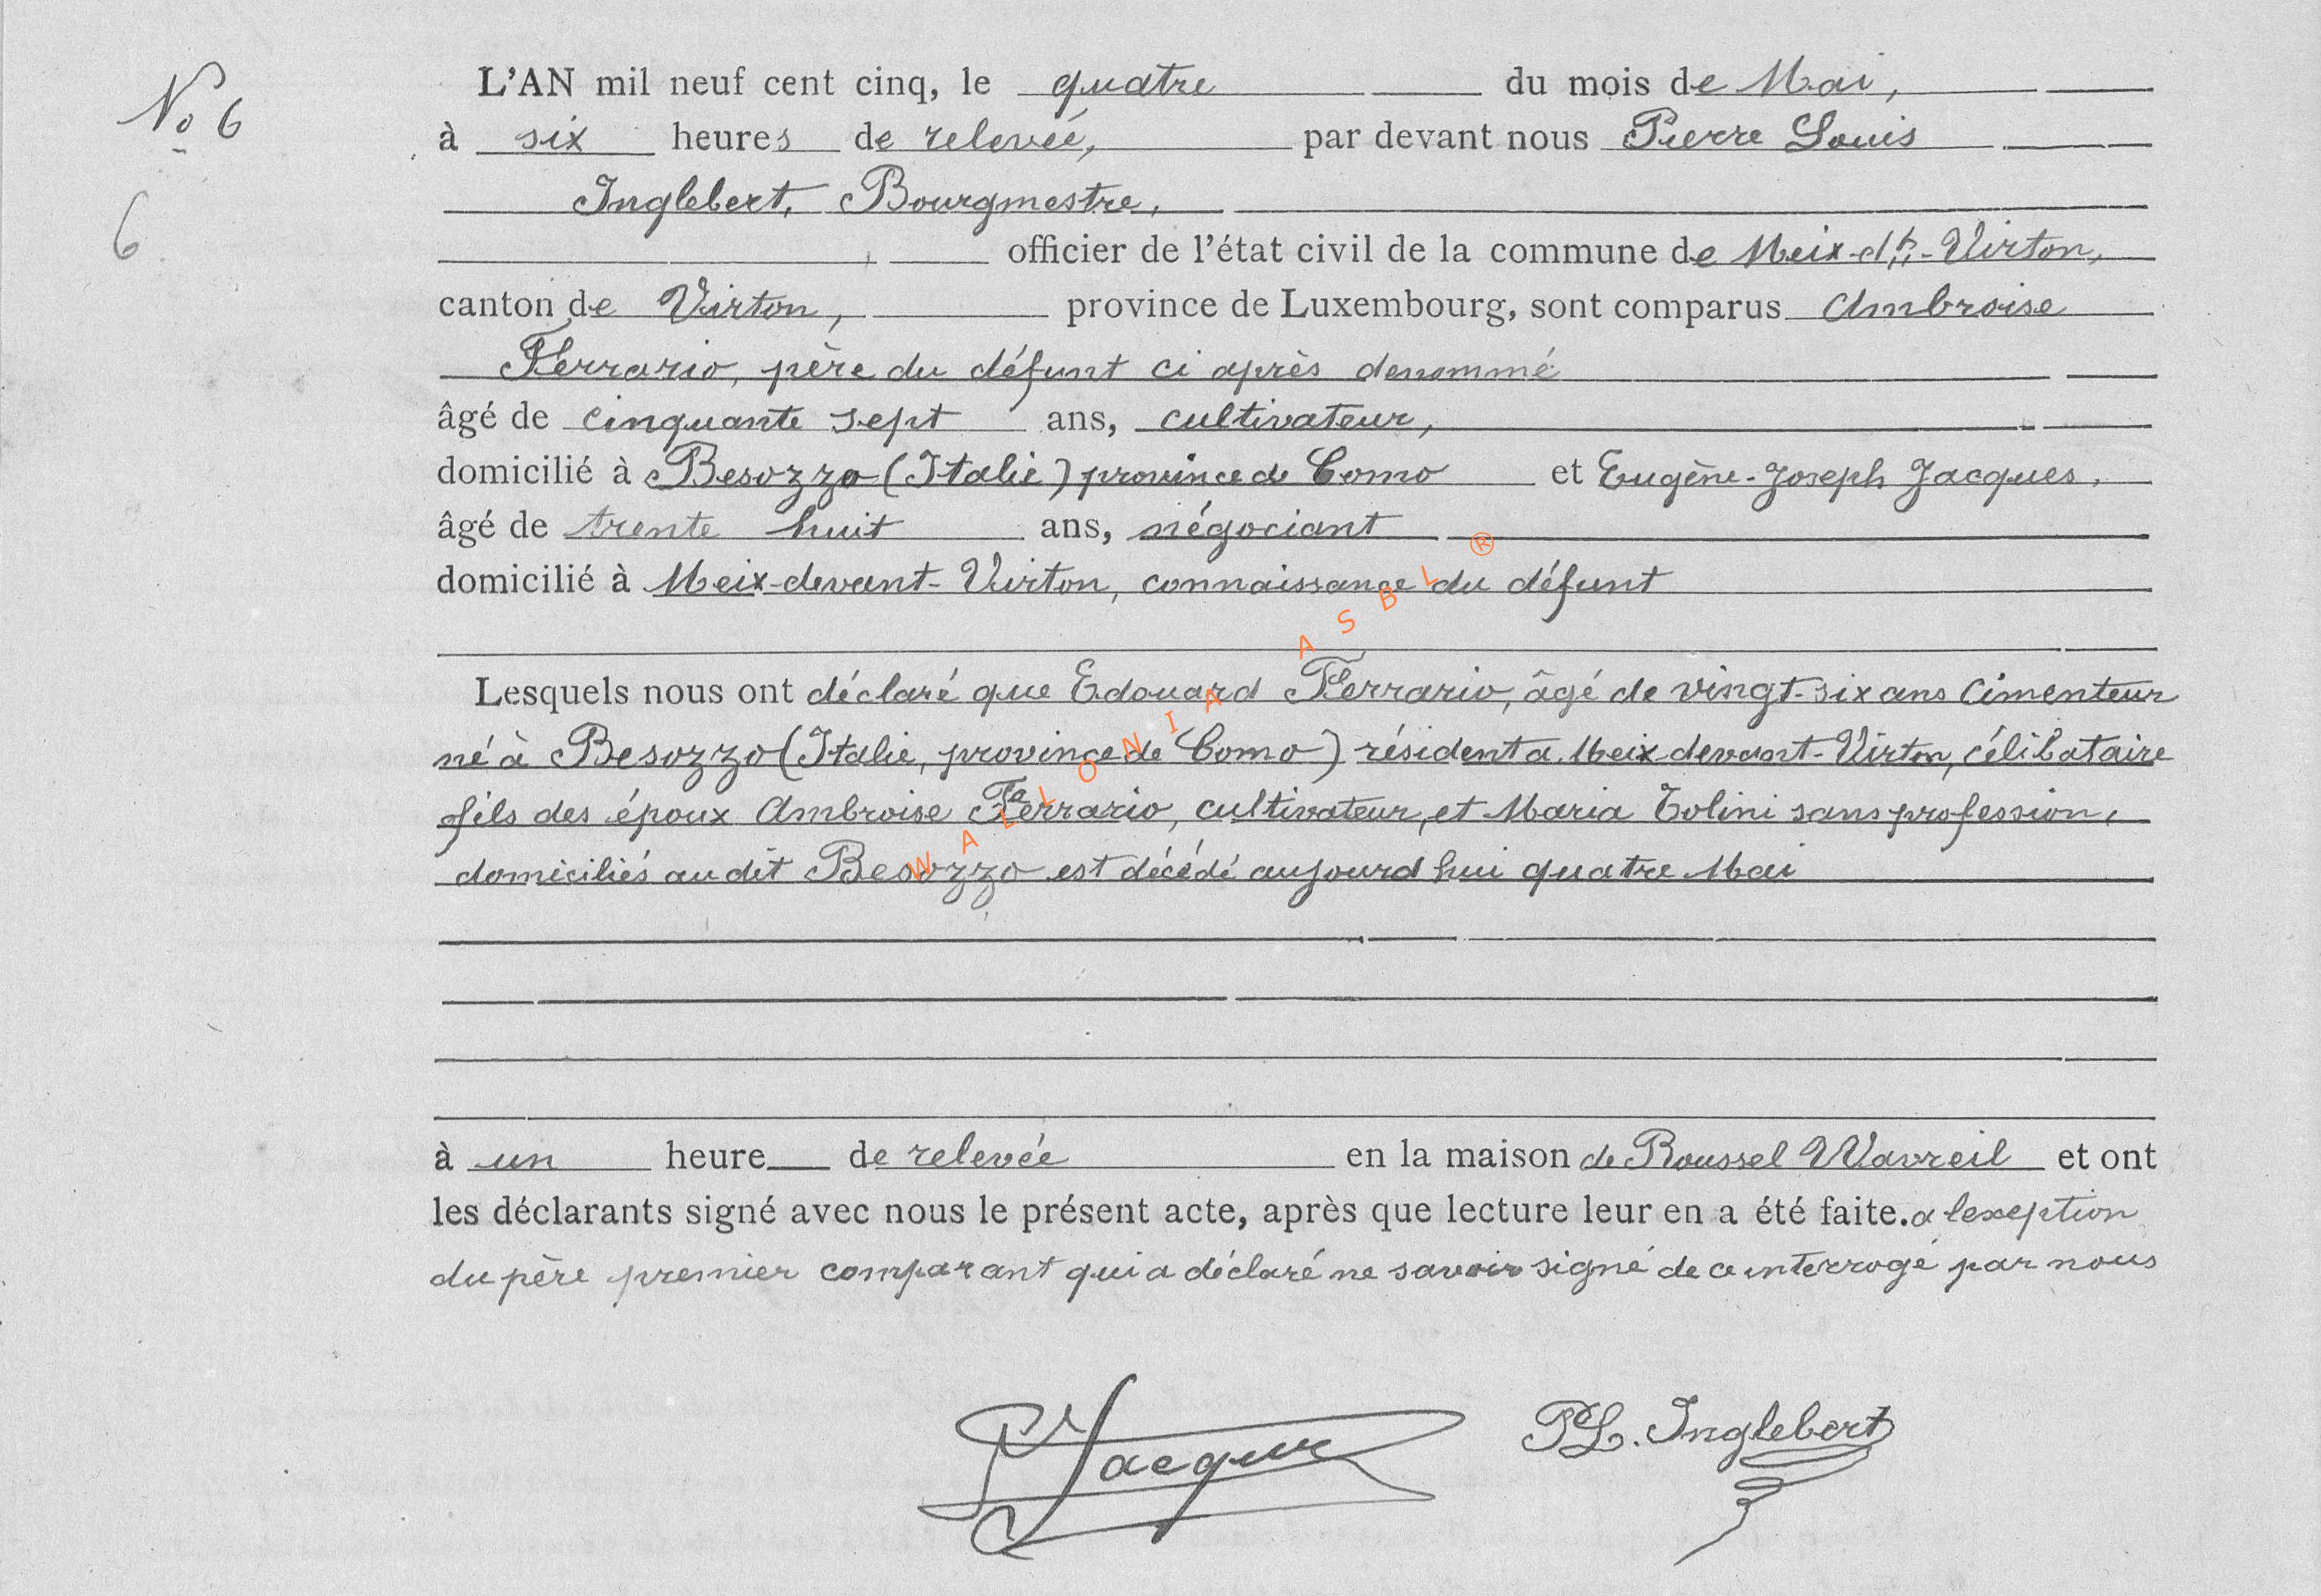 No 6
L'AN mil neuf cent cinq, le quatre du mois de Mai,
à six heures de relevée, par devant nous Pierre Louis
Inglebert, Bourgmestre,
6
officier de l'état civil de la commune de Meix-dt-Virton,
canton de Virton, province de Luxembourg, sont comparus Ambroise
Ferrario, père du défunt ci après denommé
âgé de cinquante sept ans, cultivateur,
domicilié à Besozzo (Italie) province de Como et Eugène-Joseph Jacques,
âgé de trente huit ans, négociant
domicilié à Meix-devant-Virton, connaissance du défunt
Lesquels nous ont déclaré que Edouard Ferrario, âgé de vingt-six ans Cimenteur
né à Besozzo (Italie, province de Como) résident a Meix devant-Virton, célibataire
fils des époux Ambroise Ferrario, cultivateur, et Maria Tolini sans profession,
domiciliés au dit Besozzo est décédé aujourd hui quatre Mai
à un heure de relevée en la maison de Roussel Wavreil et ont
les déclarants signé avec nous le présent acte, après que lecture leur en a été faite. a lexeption
du père premier comparant qui a déclaré ne savoir signé de ce interrogé par nous
Jacques
PL. Inglebert
WALLONIA ASBL ®